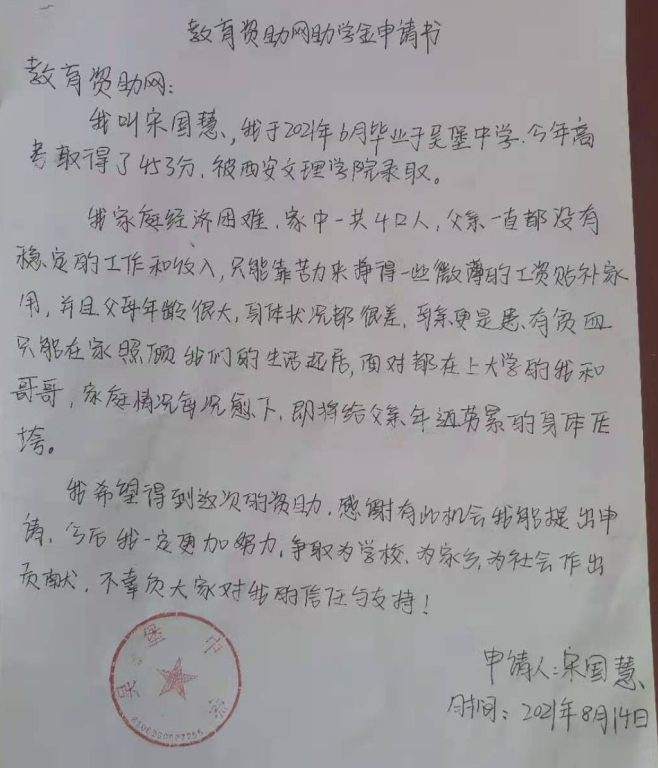 教育资助网助学金申请书
教育资助网：
我叫宋国慧，我于2021年6月毕业于吴堡中学.今年高
考取得了453分，被西安文理学院录取。
我家庭经济困难，家中一共4口人，父亲一直都没有
稳定的工作和收入，只能靠苦力来挣得一些微薄的工资贴补家
用，并且父母年龄很大，身体状况都很差，母亲更是患有贫血
只能在家照顾我们的生活起居，面对都在上大学的我和
哥哥，家庭情况每况愈下，即将给父亲年迈劳累的身体压
垮。
我希望得到这次的资助，感谢有此机会我能提出申
请，今后我一定更加努力，争取为学校，为家乡，为社会作出
贡献，不辜负大家对我的信任与支持！
吴堡中学
申请人：宋国慧
时间：2021年8月14日